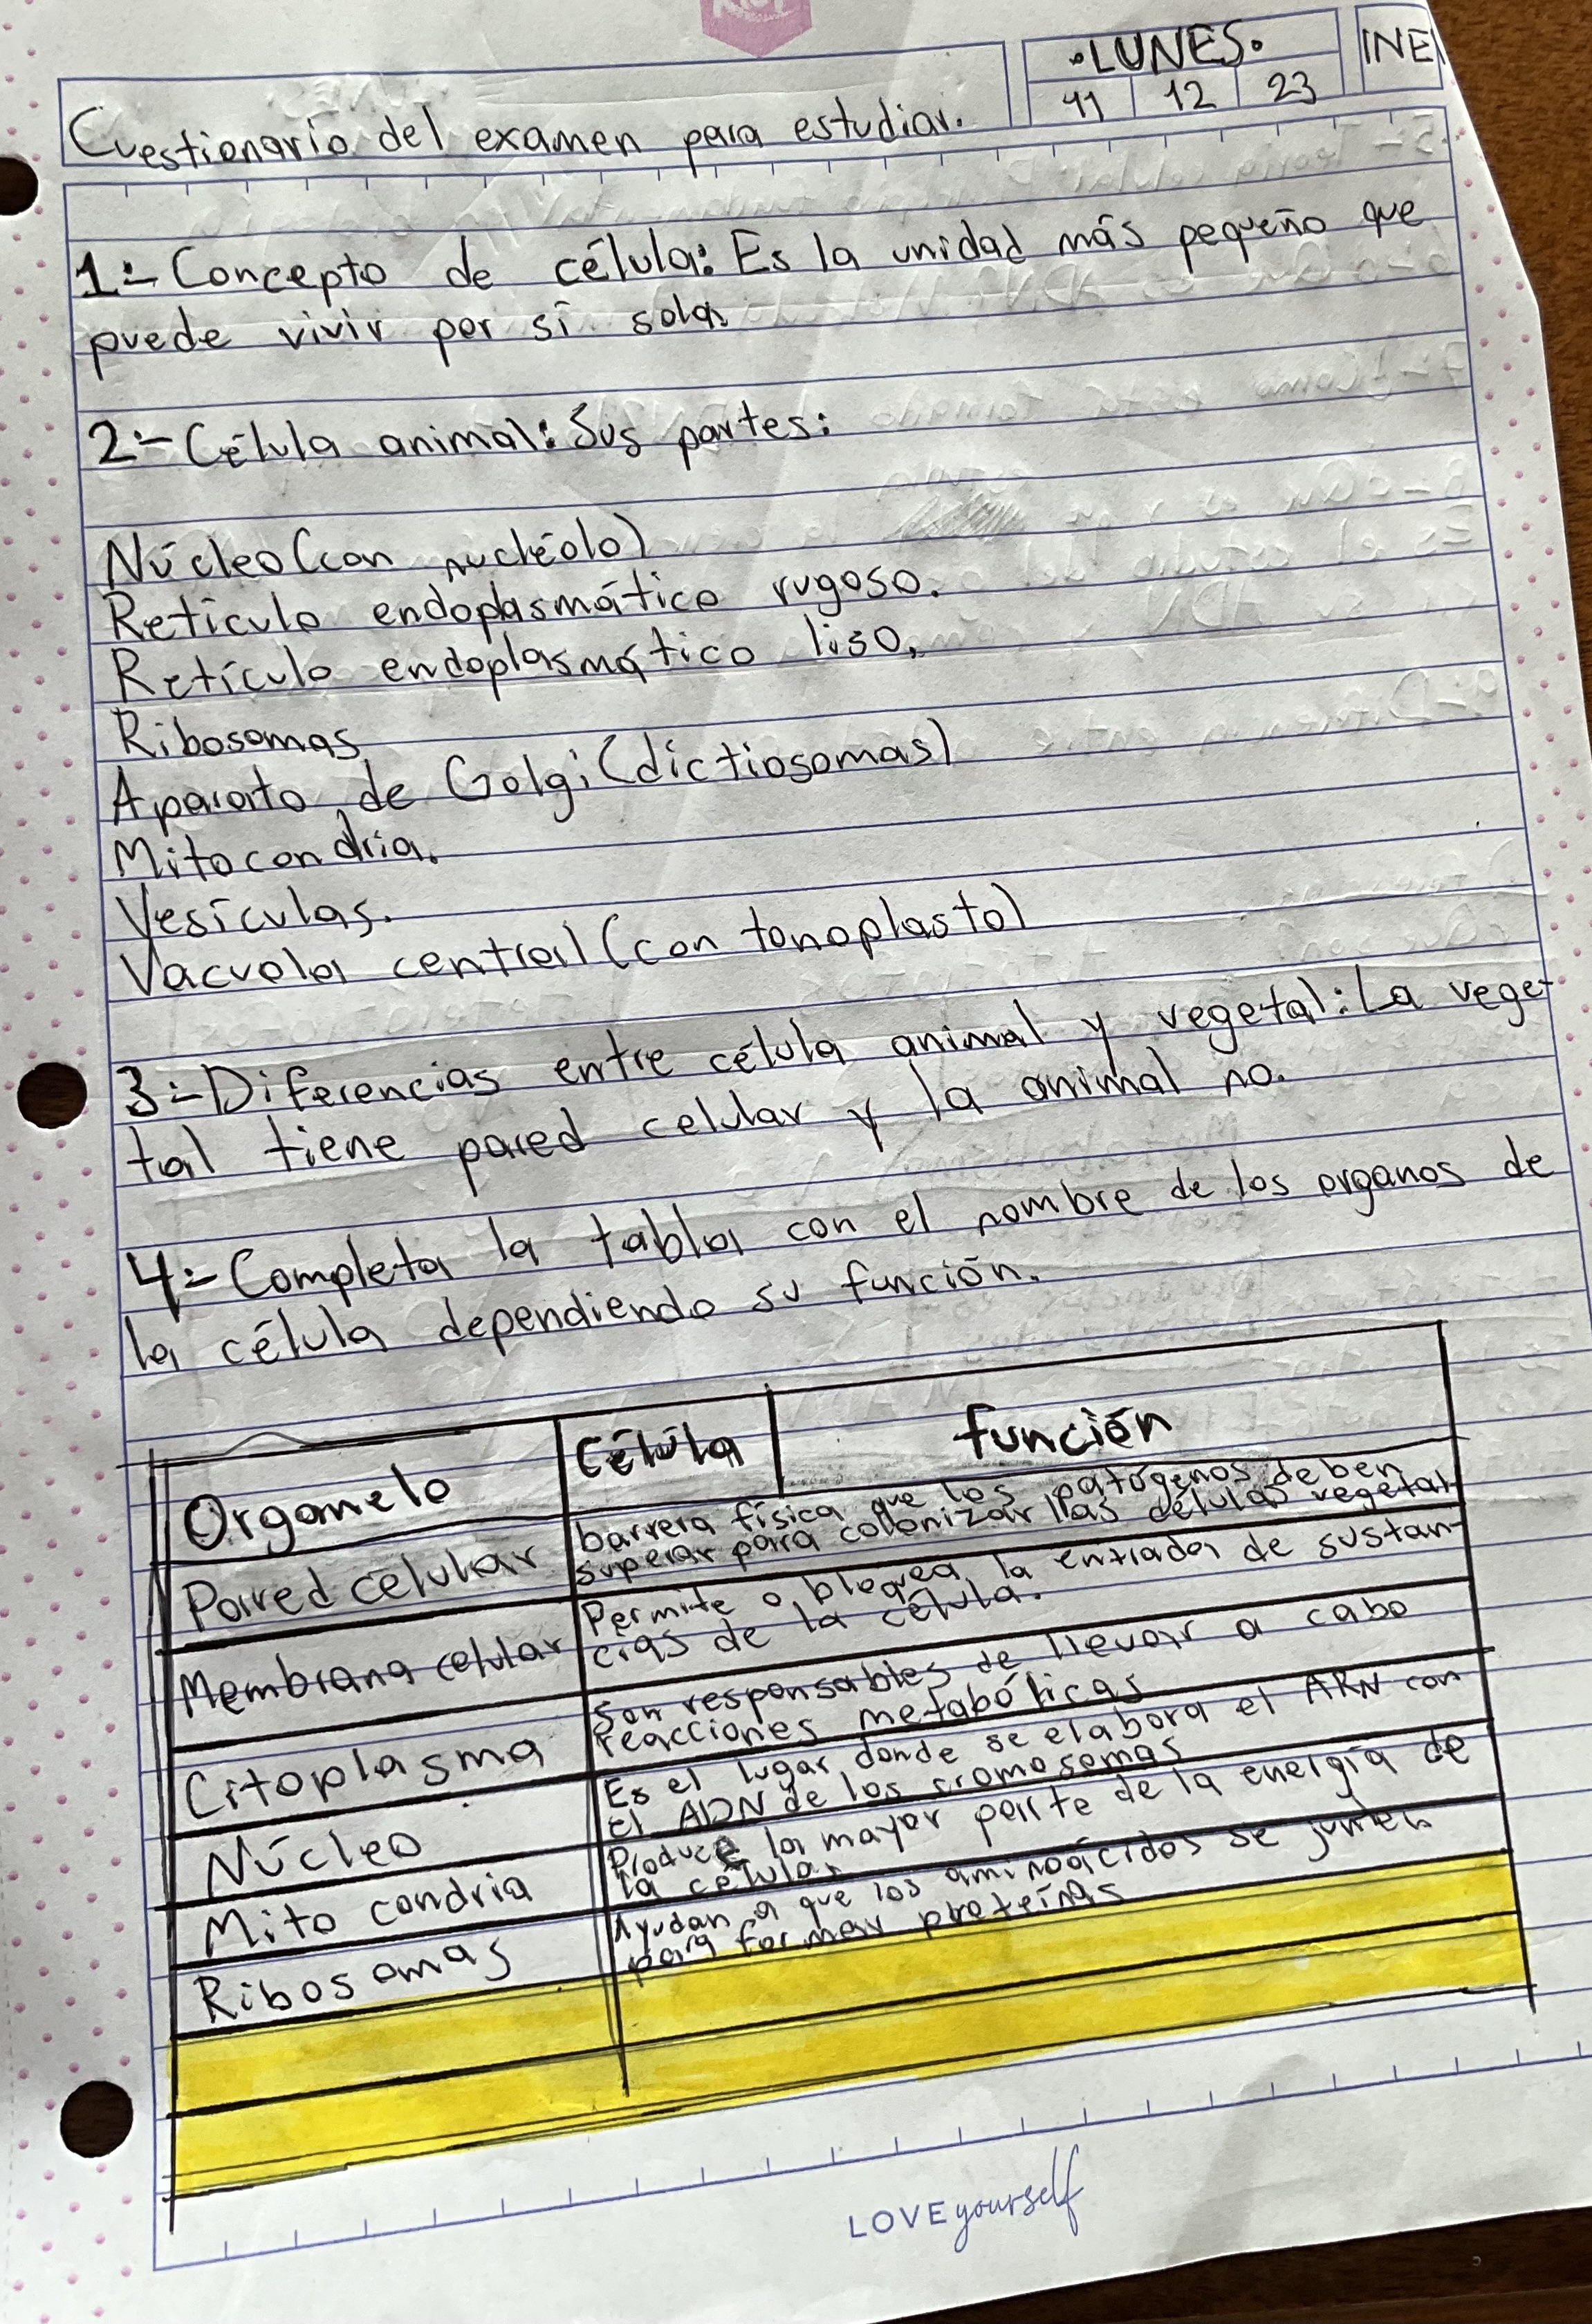 ·LUNES·
INE
11 12 23
Cuestionario del examen para estudiar.
1:- Concepto de célula: Es la unidad más pequeño que
puede vivir por sí sola.
2:- Célula animal: Sus partes:
Núcleo (con nucléolo)
Retículo endoplasmático rugoso.
Retículo endoplasmático liso.
Ribosomas
Aparato de Golgi (dictiosomas)
Mitocondria.
Vesículas.
Vacuola central (con tonoplasto)
3:- Diferencias entre célula animal y vegetal: La vege-
tal tiene pared celular y la animal no.
4:- Completa la tabla con el nombre de los organos de
la célula dependiendo su función.
Organelo Célula función
Pared celular barrera física que los patógenos deben
superar para colonizar las células vegetal
Membrana celular Permite o bloquea la entrada de sustan-
cias de la célula.
Citoplasma Son responsables de llevar a cabo
reacciones metabólicas
Núcleo Es el lugar donde se elabora el ARN con
el ADN de los cromosomas
Mitocondria Produce la mayor parte de la energía de
la célula.
Ribosomas Ayudan a que los aminoácidos se junten
para formar proteínas
LOVE yourself